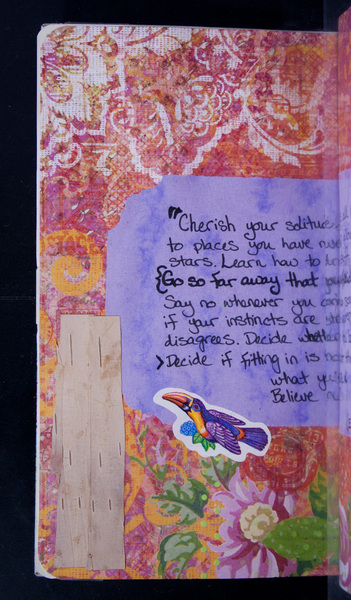 "Cherish your solitude
to places you have
stars. Learn how to
{Go so far away that you
Say no whenever you
if your instincts are
disagrees. Decide whether
>Decide if fitting in is
what you're
Believe